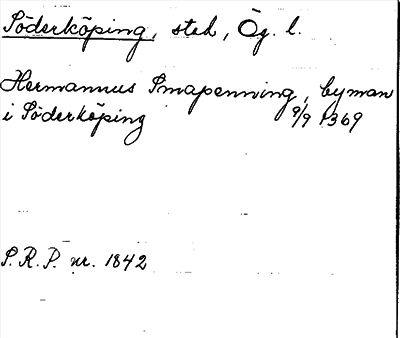 Söderköping, stad, Ög. l.
Hermannus Smapenning, byman
i Söderköping 9/9 1369
S.R.P. nr. 1842